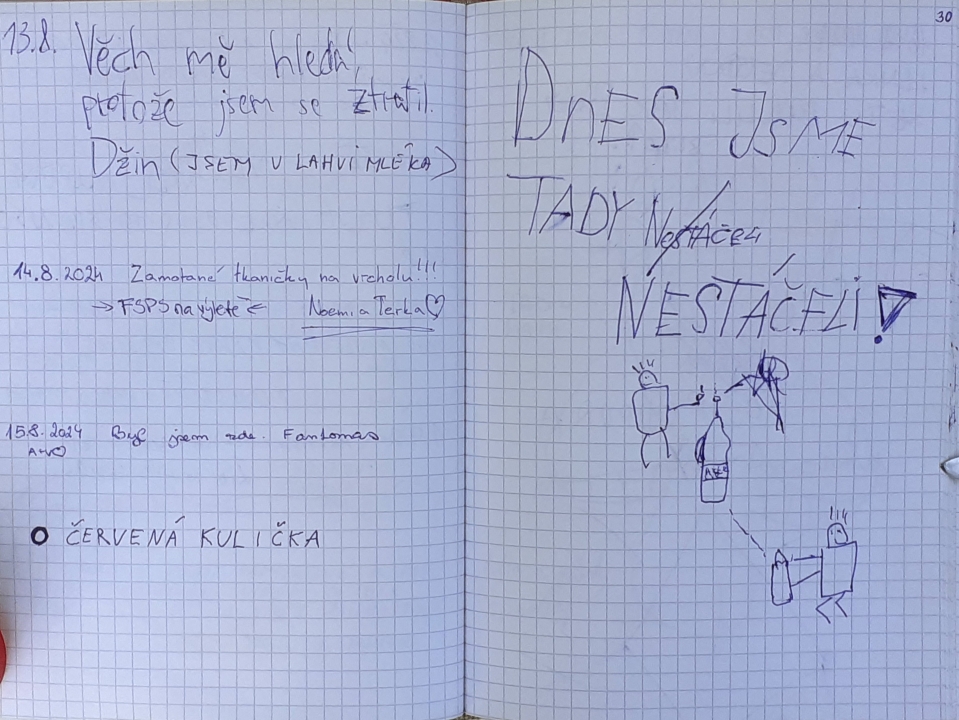 13.8. Věch mě hledá,
protože jsem se ztratil.
Džin (JSEM V LAHVI MLÉKA)
14.8.2024 Zamotané tkaničky na vrcholu!!!
→ FSPS na výletě ← Noemi a Terka♡
15.8.2024 Byl jsem zde. Fantomas
ČERVENÁ KULIČKA
30
DNES JSME
TADY
NESTÁČELI!